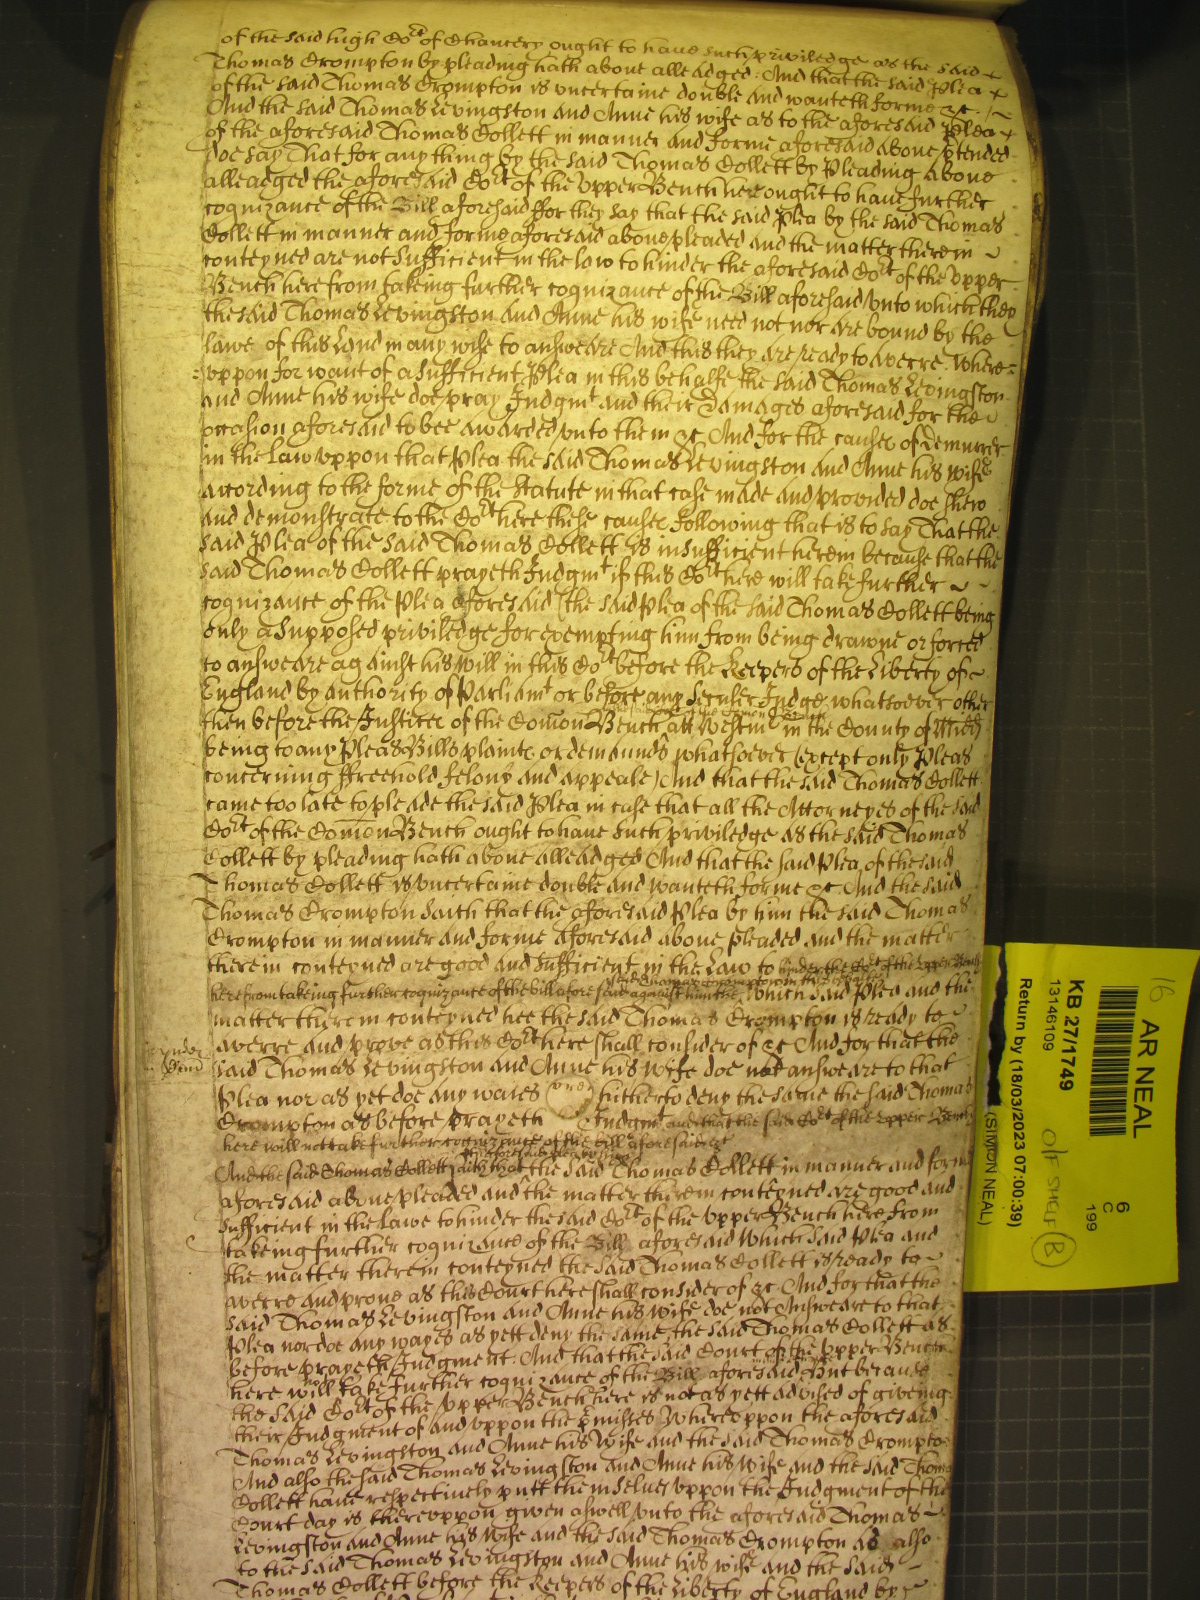 of the said high Cort of Chancery ought to have such priviledge as the said
Thomas Crompton by pleading hath above alleadged. And that the said Plea
of the said Thomas Crompton is uncertaine double and wanteth forme &c.
And the said Thomas Levingston and Anne his wife as to the aforesaid plea
of the aforesaid Thomas Collett in manner and forme aforesaid above ptended
doe say That for any thing by the said Thomas Collett by Pleading above
alleadged the aforesaid Cort of the Upper Bench here ought to have further
cognizance of the Bill aforesaid ffor they say that the said Plea by the said Thomas
Collett in manner and forme aforesaid above pleaded and the matter therein
conteyned are not Sufficient in the law to hinder the aforesaid Cort of the Upper
Bench here from takeing further cognizance of the Bill aforesaid unto which they
the said Thomas Levingston and Anne his wife need not nor are bound by the
lawe of this Land in any wise to answeare And this they are ready to averre Where=
=uppon for want of a Sufficient Plea in this behalfe the said Thomas Levingston
and Anne his wife doe pray Judgmt and their Damages aforesaid for the
occasion aforesaid to bee awarded unto them &c And for the causes of demurrer
in the Law uppon that Plea the said Thomas Levingston and Anne his wife
according to the forme of the Statute in that case made and provided doe shew
and demonstrate to the Cort here these causes following that is to say That the
said Plea of the said Thomas Collett is insufficient herein because that the
said Thomas Collett prayeth Judgmt if this Cort here will take further
cognizance of the Plea aforesaid the said Plea of the said Thomas Collett being
only a Supposed priviledge for exempting him from being drawne or forced
to answeare against his will in this Cort before the Keepers of the Liberty of
England by authority of Parliamt or before any seculer Judge whatsoever other
then before the Justices of the Comon Bench att Westmr in the County of Midd
being to any Pleas Bills plaints or demaunds whatsoever (except only Pleas
concerning ffreehold felony and appeale) And that the said Thomas Collett
came too late to pleade the said Plea in case that all the Attorneyes of the said
Cort of the Comon Bench ought to have such priviledge as the said Thomas
Collett by pleading hath above alleadged And that the said Plea of the said
Thomas Collett is uncertaine double and wanteth forme &c. And the said
Thomas Crompton saith that the aforesaid Plea by him the said Thomas
Crompton in manner and forme aforesaid above pleaded and the matter
therein conteyned are good and Sufficient in the Law to hinder the Cort of the Upper Bench
here from takeing further cognizance of the bill aforesaid against him the said Thomas Crompton Which said Plea and the
matter therein conteyned hee the said Thomas Crompton is ready to
averre and prove as this Cort here shall consider of &c And for that the
said Thomas Levingston and Anne his wife doe not answeare to that
Plea nor as yet doe any waies hitherto deny the same the said Thomas
Crompton as before prayeth Judgmt and that the said Cort of the Upper Bench
here will not take further cognizance of the bill aforesaid &c
And the said Thomas Collett saith that the said Thomas Collett in manner and forme
aforesaid above pleaded and the matter therein conteyned are good and
Sufficient in the Lawe to hinder the said Cort of the Upper Bench here from
takeing further cognizance of the Bill aforesaid Which said Plea and
the matter therein conteyned the said Thomas Collett is ready to
averre and prove as this Court here shall consider of &c And for that the
said Thomas Levingston and Anne his wife doe not Answeare to that
Plea nor doe any wayes as yett deny the same, the said Thomas Collett as
before prayeth Judgment. And that the said Court of the Upper Bench
here will not take further cognizance of the Bill aforesaid But because
the said Cort of the Upper Bench here is not as yett advised of giveing
their Judgment of and uppon the pmisses Whereuppon the aforesaid
Thomas Levingston and Anne his Wife and the said Thomas Crompton
And also the said Thomas Levingston and Anne his Wife and the said Thomas
Collett have respectively putt themselves uppon the Judgment of the
Court day is thereuppon given aswell unto the aforesaid Thomas
Levingston and Anne his Wife and the said Thomas Crompton as also
to the said Thomas Levingston and Anne his wife and the said
Thomas Collett before the Keepers of the Liberty of England by
16
AR NEAL
KB 27/1749
13146109
Return by (18/03/2023 07:00:39)
(SIMON NEAL)
6
C
199
O/F SHELF B